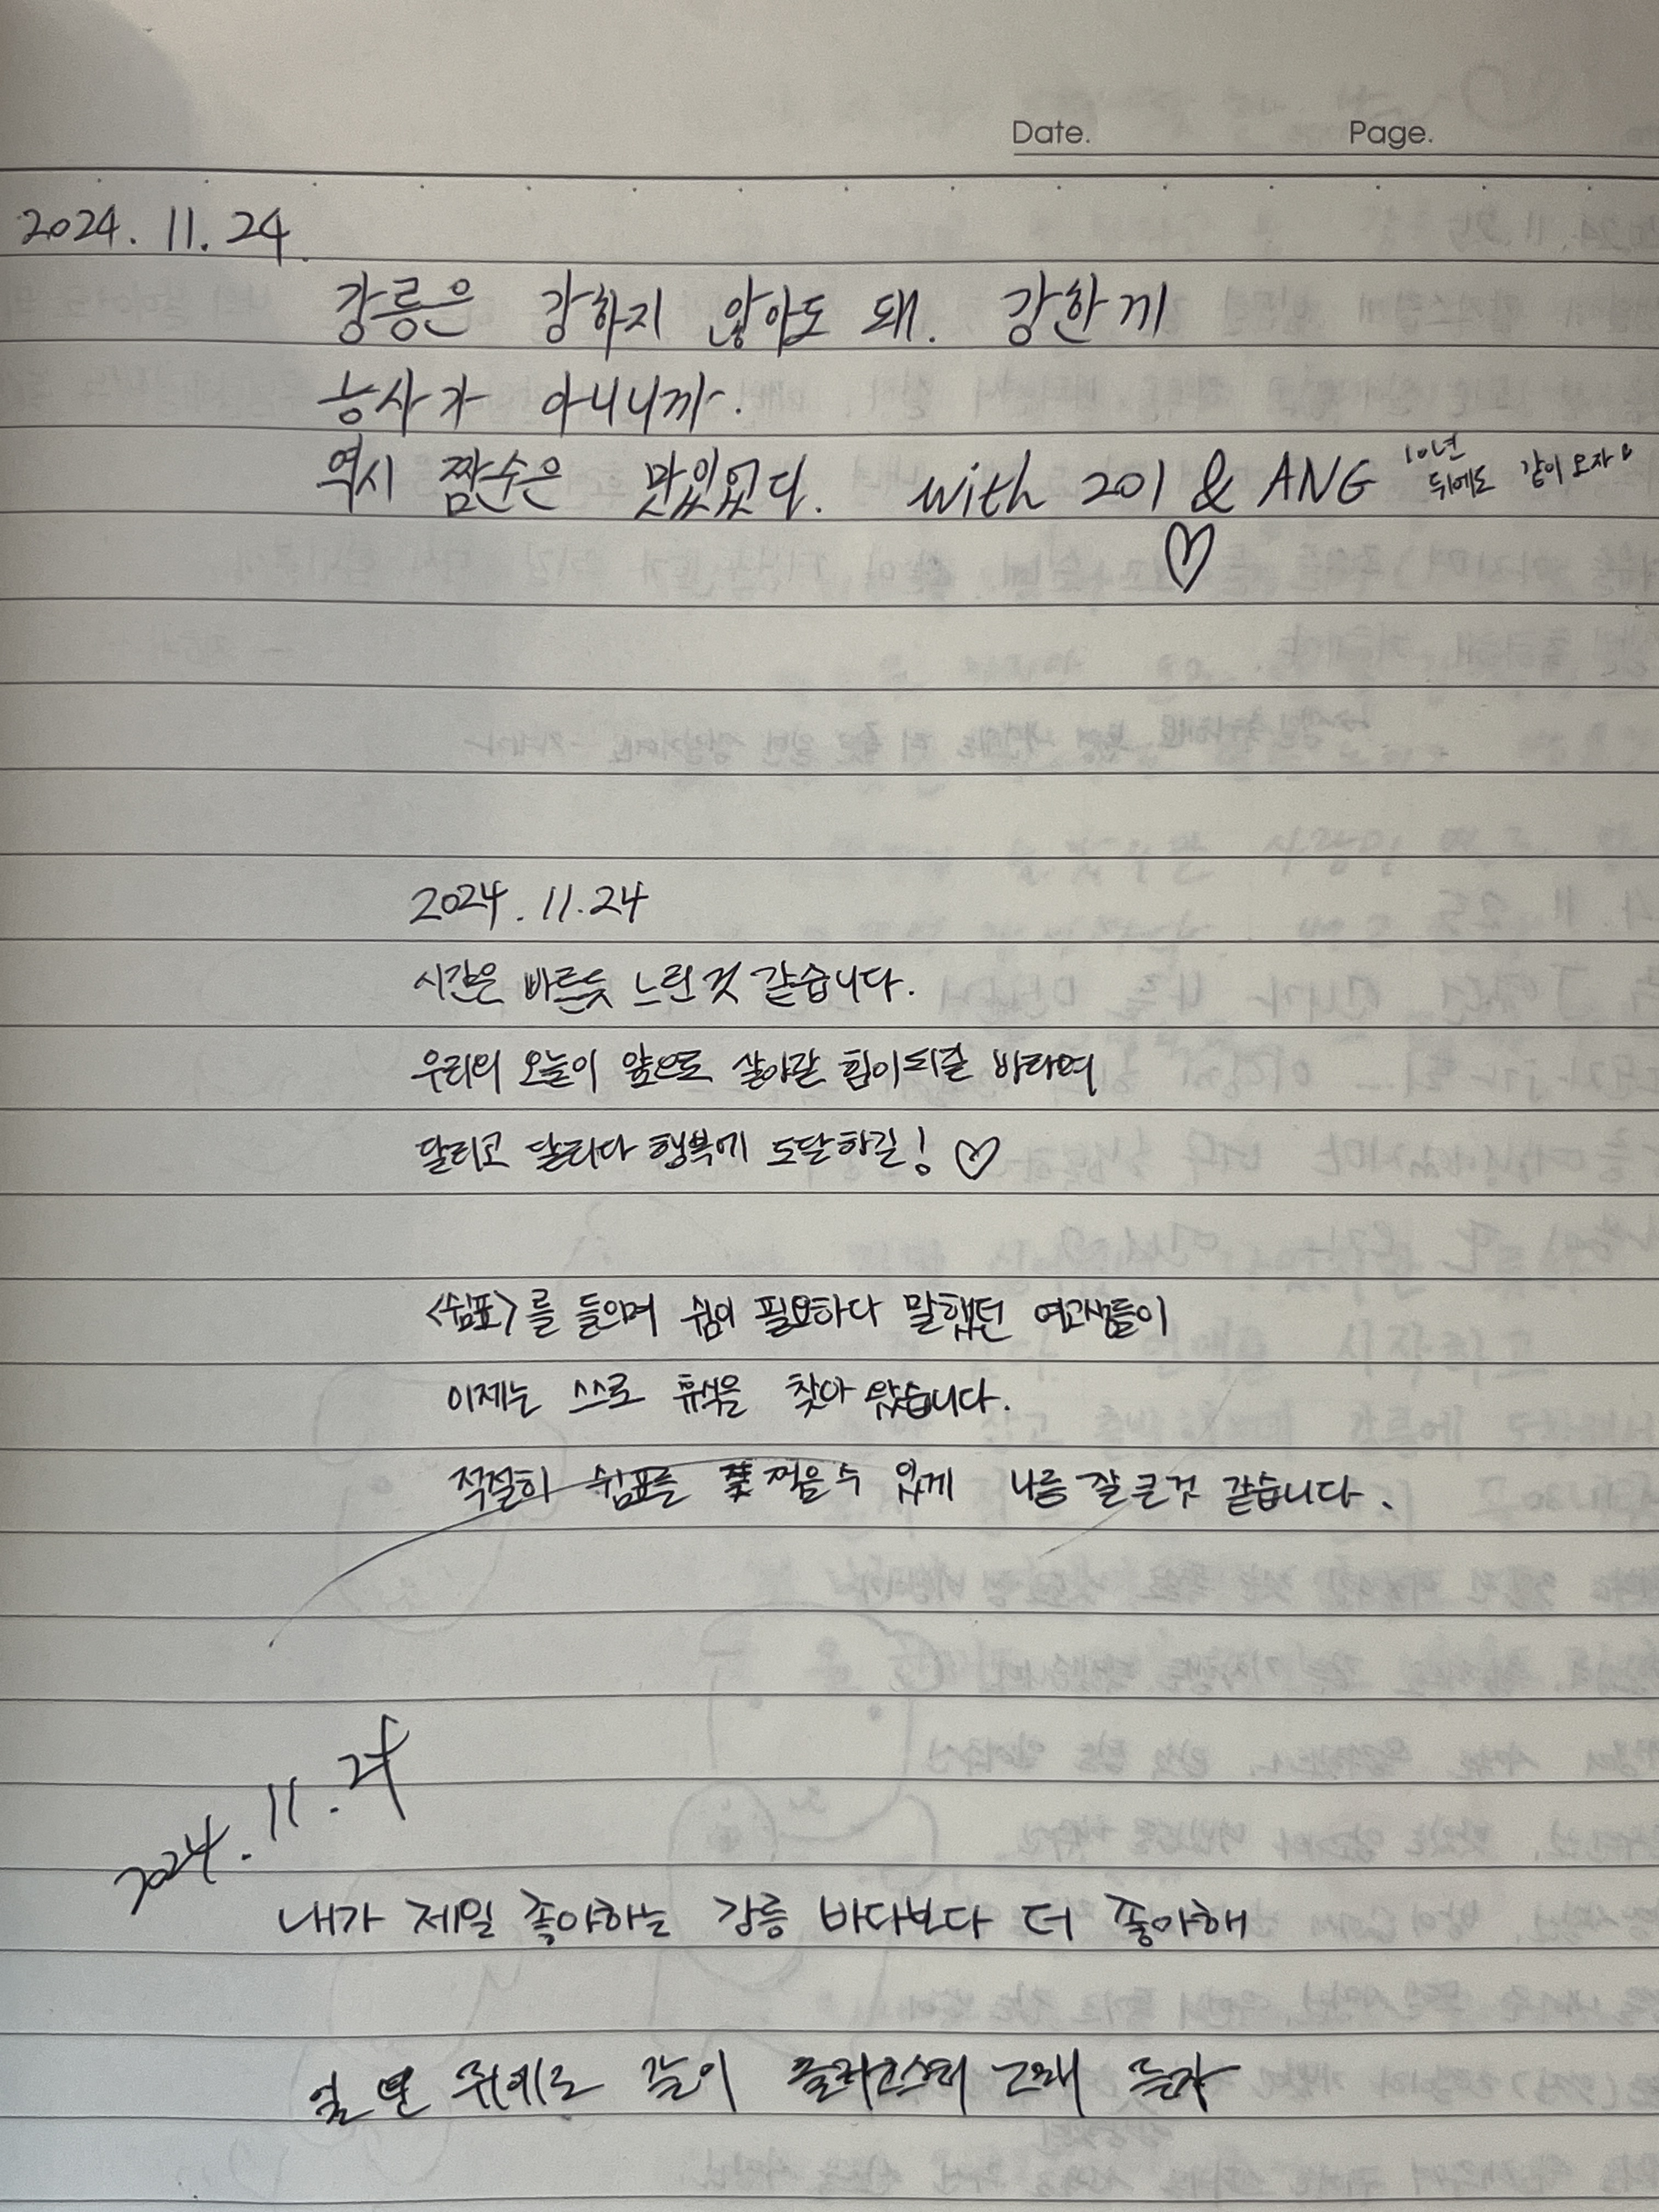 Date. Page.
2024. 11. 24.
강릉은 강하지 않아도 돼. 강한게
농사가 아니니까.
역시 짬수은 맛있었다. with 201 & ANG 10년 뒤에도 같이 오자
♡
2024. 11. 24
시간은 빠른듯 느린 것 같습니다.
우리의 오늘이 앞으로 살아갈 힘이되길 바라며
달리고 달리다 행복에 도달하길! ♡
<쉼표>를 들으며 쉼이 필요하다 말했던 여고생들이
이제는 스스로 휴식을 찾아 왔습니다.
적절히 쉼표를 찍을 수 있게 나름 잘 큰 것 같습니다.
2024. 11. 24
내가 제일 좋아하는 강릉 바다보다 더 좋아해
일 년 뒤에도 같이 노래 듣자